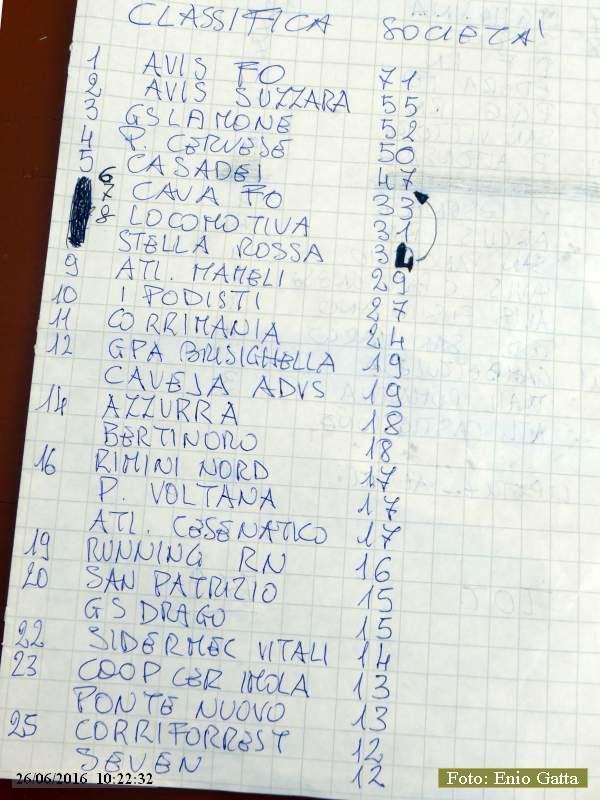 CLASSIFICA SOCIETA'
1 AVIS FO 71
2 AVIS SUZZARA 55
3 GS LAMONE 52
4 P. CERVESE 50
5 CASADEI 47
6 CAVA FO 33
7 LOCOMOTIVA 31
8 STELLA ROSSA
9 ATL. MAMELI 29
10 I PODISTI 27
11 CORRIMANIA 24
12 GPA BRISIGHELLA 19
CAVEJA ADVS 19
14 AZZURRA 18
BERTINORO 18
16 RIMINI NORD 17
P. VOLTANA 17
ATL. CESENATICO 17
19 RUNNING RN 16
20 SAN PATRIZIO 15
GS DRAGO 15
22 SIDERMEC VITALI 14
23 COOP CER IMOLA 13
PONTE NUOVO 13
25 CORRIFORREST 12
SEVEN 12
26/06/2016 10:22:32
Foto: Enio Gatta